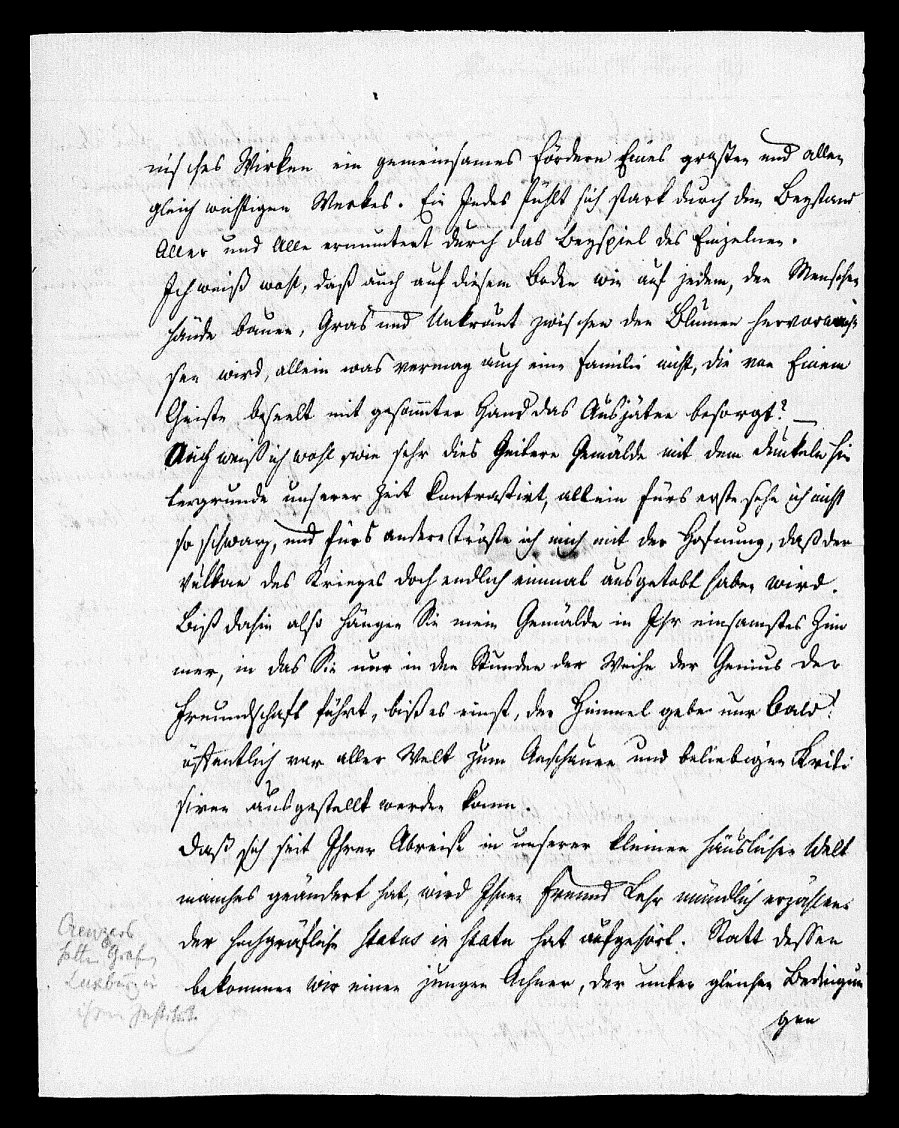 nisches Wirken ein gemeinsames Fördern Eines großen und allen
gleich wichtigen Werkes. Ein Jedes fühlt sich stark durch den Beystand
Aller und Alle ermuntert durch das Beyspiel des Einzelnen.
Ich weiß wohl, daß auch auf diesem Boden wie auf jedem, den Menschen
hände bauen, Gras und Unkraut zwischen den Blumen hervorwach
sen wird, allein was vermag auch eine Familie nicht, die von Einem
Geiste beseelt mit gesammter Hand das Ausjäten besorgt? —
Auch weiß ich wohl, wie sehr dies heitere Gemälde mit dem dunkeln Hin
tergrunde unserer Zeit kontrastirt, allein fürs erste sehe ich nicht
so schwarz, und fürs andere tröste ich mich mit der Hofnung, daß der
Vulkan des Krieges doch endlich einmal ausgetobt haben wird.
Biß dahin also hängen Sie mein Gemälde in Ihr einsamstes Zim
mer, in das Sie nur in den Stunden der Weihe der Genius der
Freundschaft führt, biß es einst, der Himmel gebe nur bald!
öffentlich vor aller Welt zum Anschauen und beliebigen Kriti
siren ausgestellt werden kann.
Daß sich seit Ihrer Abreise in unserer kleinen häuslichen Welt
manches geändert hat, wird Ihnen Freund Lehr mündlich erzählen:
der hochgräfliche status in statu hat aufgehört. Statt dessen
bekommen wir einen jungen Achner, der unter gleichen Bedingun
gen
Creuzers
hatten Grafen
Luxburg in
ihrem Institut.